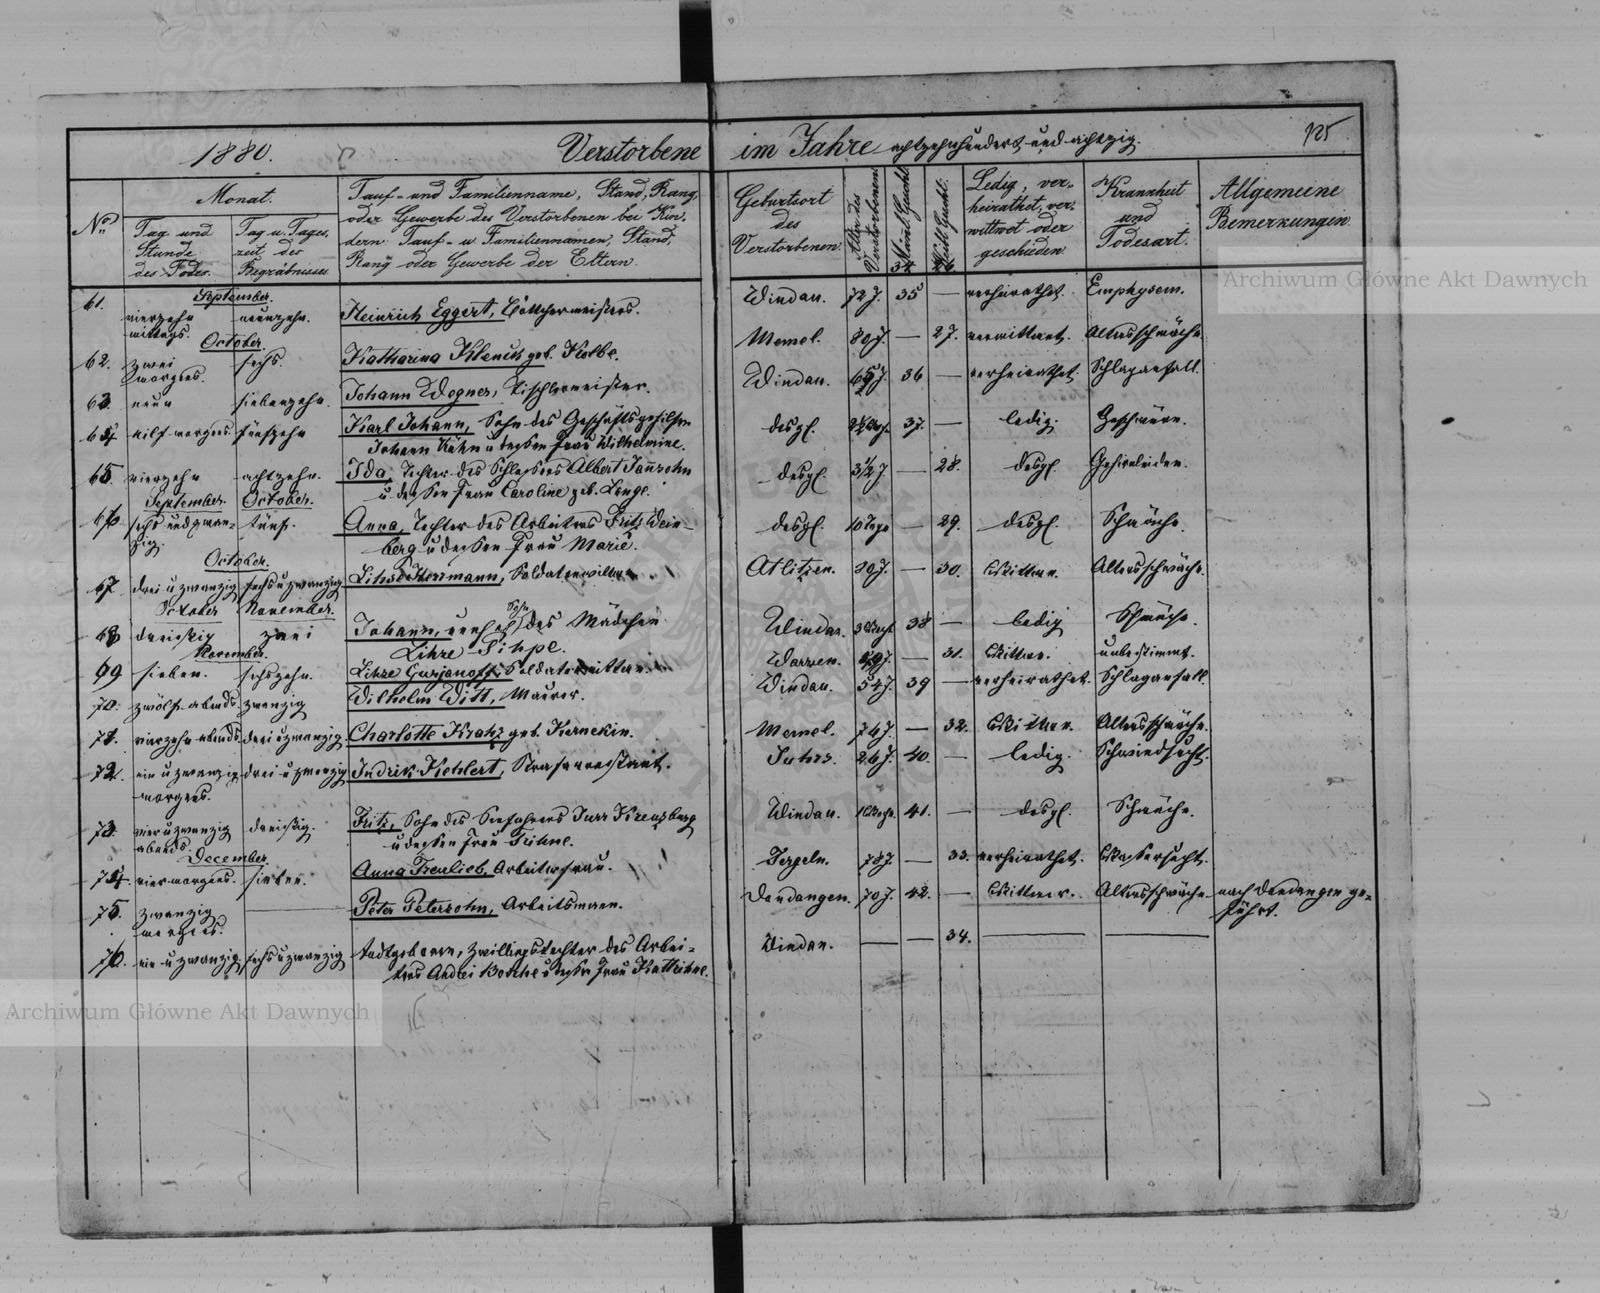 1880. Verstorbene im Jahre achtzehnhundert und achtzig. 125
No. Monat. Tauf- und Familienname, Stand, Rang
oder Gewerbe des Verstorbenen bei Kin-
dern Tauf- u Familiennamen, Stand,
Rang oder Gewerbe der Eltern.
Tag und
Stunde
des Todes.
Tag u. Tages-
zeit des
Begräbnisses
Geburtsort
des
Verstorbenen
Alter des
Verstorbenen
Männl. Geschl.
34
Weibl. Geschl.
26
Ledig, ver-
heirathet, ver-
wittwet oder
geschieden
Krankheit
und
Todesart.
Allgemeine
Bemerkungen.
September.
61. vierzehn neunzehn. Heinrich Eggert, Böttchermeister. Windau. 72 J. 35 — verheirathet. Emphysem.
mittags.
October.
62. zwei sechs. Katharina Klenus geb. Kolbe. Memel. 80 J. — 27. verwittwet. Altersschwäche
morgens.
63. neun siebenzehn. Johann Wogner, Tischlermeister. Windau. 65 J. 36 — verheirathet. Schlaganfall.
64. elf morgens fünfzehn Karl Johann, Sohn des Geschäftsgehilfen desgl. 37. — ledig. Geschwüre.
Johann Kühn u dessen Frau Wilhelmine.
65. vierzehn achtzehn. Ida, Tochter des Schlossers Albert Jannsohn desgl. 3½ J. — 28. desgl. Gehirnleiden.
u dessen Frau Caroline geb. Lenge.
September. October.
66. sechs und zwan- fünf. Anna, Tochter des Arbeiters Fritz Wein- desgl. 10 Tage — 29. desgl. Schwäche.
zig. berg u dessen Frau Marie.
October.
67. drei u zwanzig sechs u zwanzig Lihse Hermann, Soldatenwittwe Atlitzen. 80 J. — 30. Wittwe. Altersschwäche.
October November.
68. dreissig zwei Johann, unehel. Sohn des Mädchen Windau. 38 — ledig Schwäche.
Lihze Sihpe.
November.
69. sieben. sechszehn. Lihze Gurjanoff, Soldatenwittwe. Warwen. — 31. Wittwe. unbestimmt.
70. zwölf abends. zwanzig Wilhelm Witt, Maurer. Windau. 54 J. 39 — verheirathet. Schlaganfall
71. vierzehn abends. drei u zwanzig. Charlotte Krohz geb. Kernekin. Memel. 76 J. — 32. Wittwe. Altersschwäche.
72. ein u zwanzig drei u zwanzig Indrik Kehlert, Strafarrestant. 26 J. 40. — ledig. Schwindsucht.
morgens.
73. vier u zwanzig dreissig. Fritz, Sohn des Seefahrers Jurr Kreuzberg Windau. 41. — desgl. Schwäche.
abends. u dessen Frau Tühne.
December.
74. vier morgens. sieben. Anna Freulieb, Arbeiterfrau. Tergeln. 78 J. — 33. verheirathet. Wassersucht.
75. zwanzig — Peter Petersohn, Arbeitsmann. Dondangen. 70 J. 42. — Wittwer. Altersschwäche nach Dondangen ge-
morgens. führt.
76. ein u zwanzig sechs u zwanzig todtgeboren, Zwillingstochter des Arbei- Windau. — — 34. — —
ters Andrei Bonne u dessen Frau Kattrihne.
Archiwum Główne Akt Dawnych
Archiwum Główne Akt Dawnych